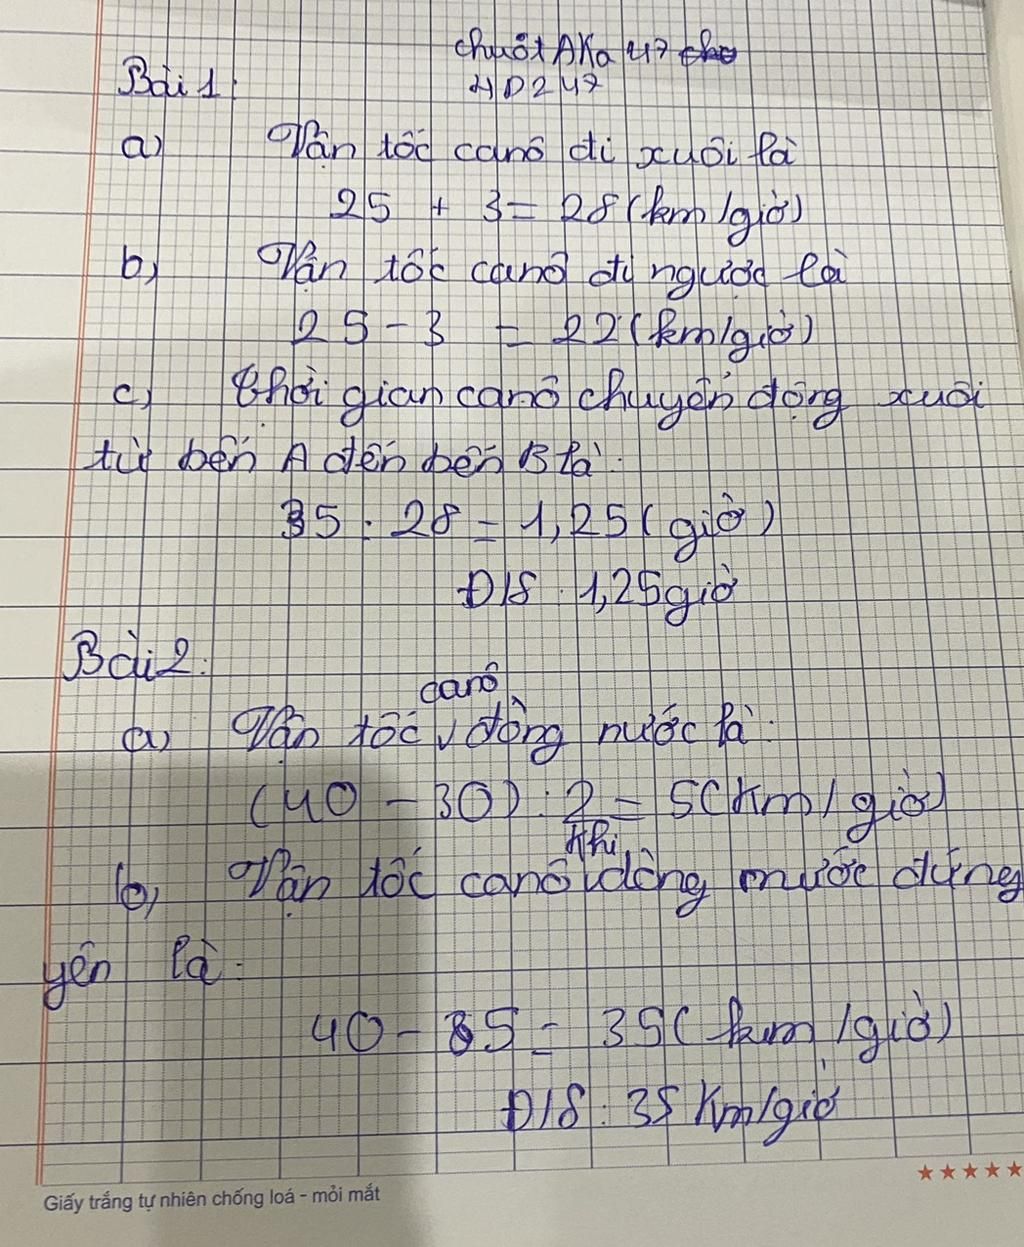 chuột AKa 47 cho
Bài 1: HD247
a) Vận tốc canô đi xuôi là
25 + 3 = 28 (km/giờ)
b) Vận tốc canô đi ngược là
25 - 3 = 22 (km/giờ)
c) Thời gian canô chuyển động xuôi
từ bến A đến bến B là:
35 : 28 = 1,25 (giờ)
Đ/S : 1,25 giờ
Bài 2:
canô
a) Vận tốc v dòng nước là:
(40 - 30) : 2 = 5 (km/giờ)
khi
b) Vận tốc canô v dòng nước đứng
yên là:
40 - 5 = 35 (km/giờ)
Đ/S : 35 Km/giờ
Giấy trắng tự nhiên chống loá - mỏi mắt